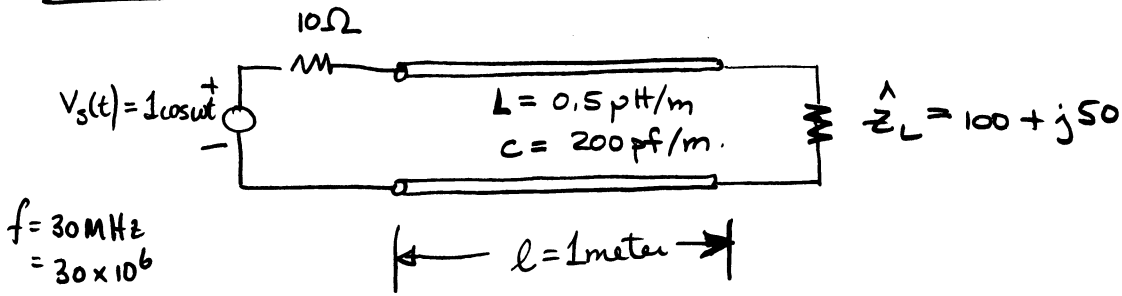 10Ω
V_s(t) = 1cosωt
+
−
L = 0.5 pH/m
c = 200 pf/m.
ẑ_L = 100 + j50
f = 30 MHz
= 30 × 10⁶
l = 1 meter